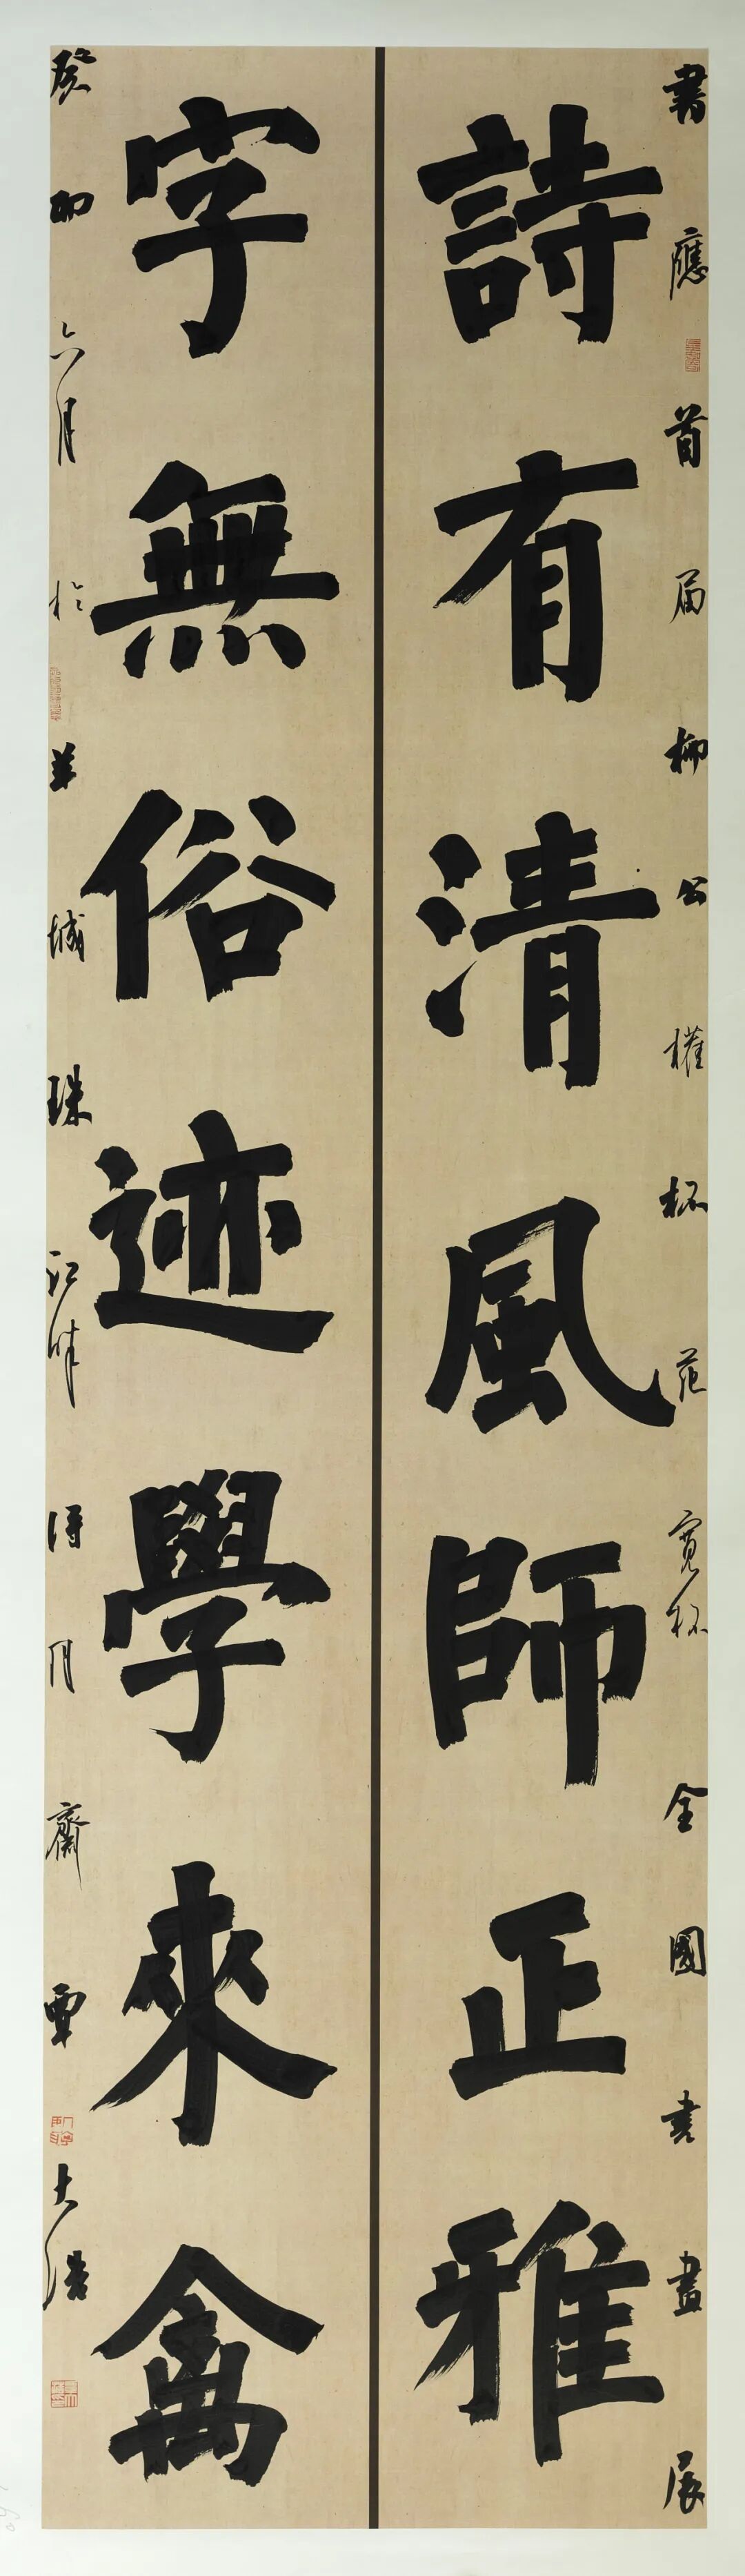 書應首届柳公權杯范寬杯全國書畫展
詩有清風師正雅
字無俗迹學來禽
癸卯六月於羊城珠江畔得月齋覃大浩